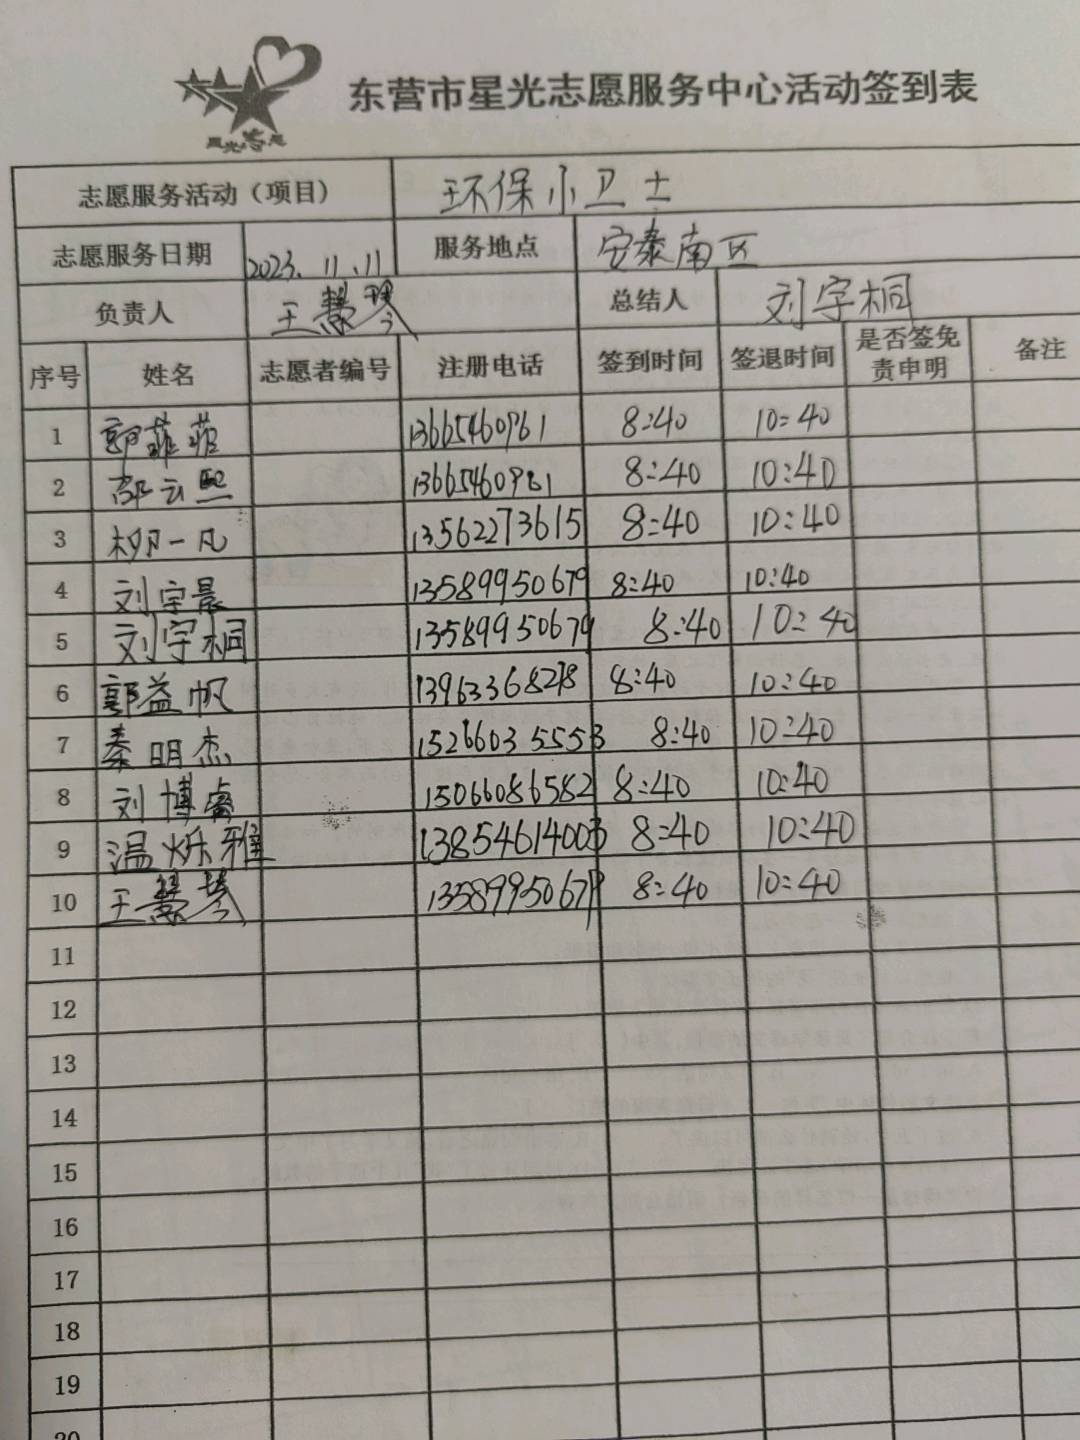 星光志愿
东营市星光志愿服务中心活动签到表
志愿服务活动（项目） 环保小卫士
志愿服务日期 2023.11.11 服务地点 安泰南区
负责人 王慧琴 总结人 刘宇桐
序号 姓名 志愿者编号 注册电话 签到时间 签退时间 是否签免责申明 备注
1 郭菲菲 13665460961 8:40 10:40
2 郭云熙 8:40 10:40
3 柳一凡 13562273615 8:40 10:40
4 刘宇晨 13589950679 8:40 10:40
5 刘宇桐 13589950679 8:40 10:40
6 郭益帆 13963368278 8:40 10:40
7 秦明杰 15266035553 8:40 10:40
8 刘博睿 15066086582 8:40 10:40
9 温烁雅 13854614003 8:40 10:40
10 王慧琴 13589950679 8:40 10:40
11
12
13
14
15
16
17
18
19
20